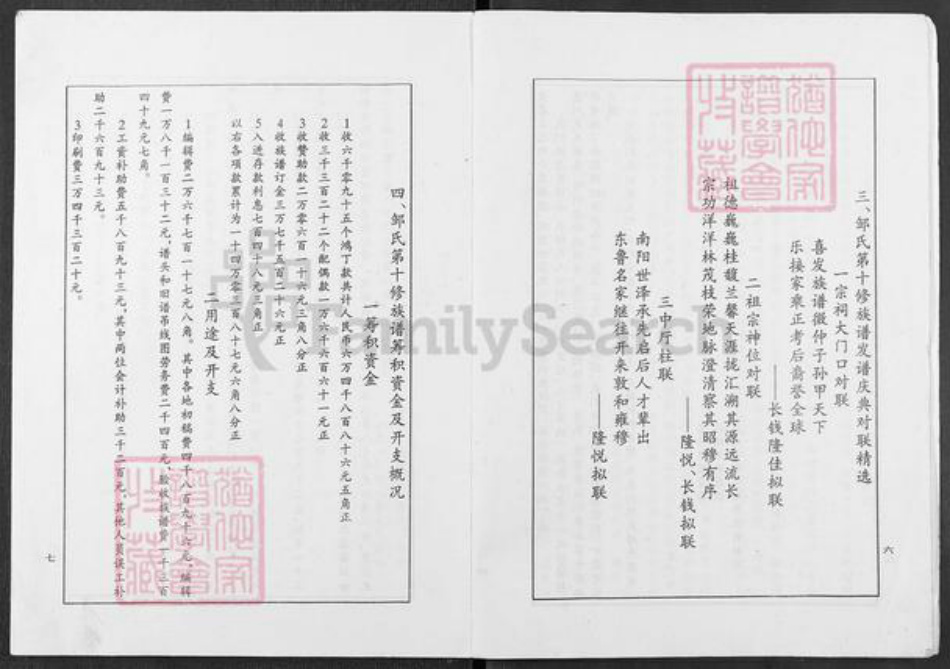 三、邹氏第十修族谱发谱庆典对联精选
一宗祠大门口对联
喜发族谱徽仲子孙甲天下
乐接家乘正考后裔誉全球
——长钱隆佳拟联
二祖宗神位对联
祖德巍巍桂馥兰馨天涯拢汇溯其源远流长
宗功洋洋林茂枝荣地脉澄清察其昭穆有序
——隆悦、长钱拟联
三中厅柱联
南阳世泽承先启后人才辈出
东鲁名家继往开来敦和雍穆
——隆悦拟联
六
四、邹氏第十修族谱筹积资金及开支概况
一筹积资金
1收六千零九十五个鸿丁款共计人民币六万四千八百八十六元五角正
2收三千三百二十二个配偶款一万六千六百六十一元正
3收赞助款二万零六百一十六元三角八分正
4收族谱订金三万七千五百二十六元正
5入进存款利息七百四十八元三角正
以右各项款累计为一十四万零三百八十七元六角八分正
二用途及开支
1编辑费二万六千七百一十七元八角。其中各地初稿费四千八百九十六元,编辑
费一万八千一百三十二元,谱头和旧谱吊线图劳务费二千四百元,验收族谱费一千三百
四十九元七角。
2工资补助费五千八百九十三元,其中两位会计补助三千二百元,其他人员误工补
助二千六百九十三元。
3印刷费三万四千三百二十元。
七
FamilySearch
谱学會
收藏